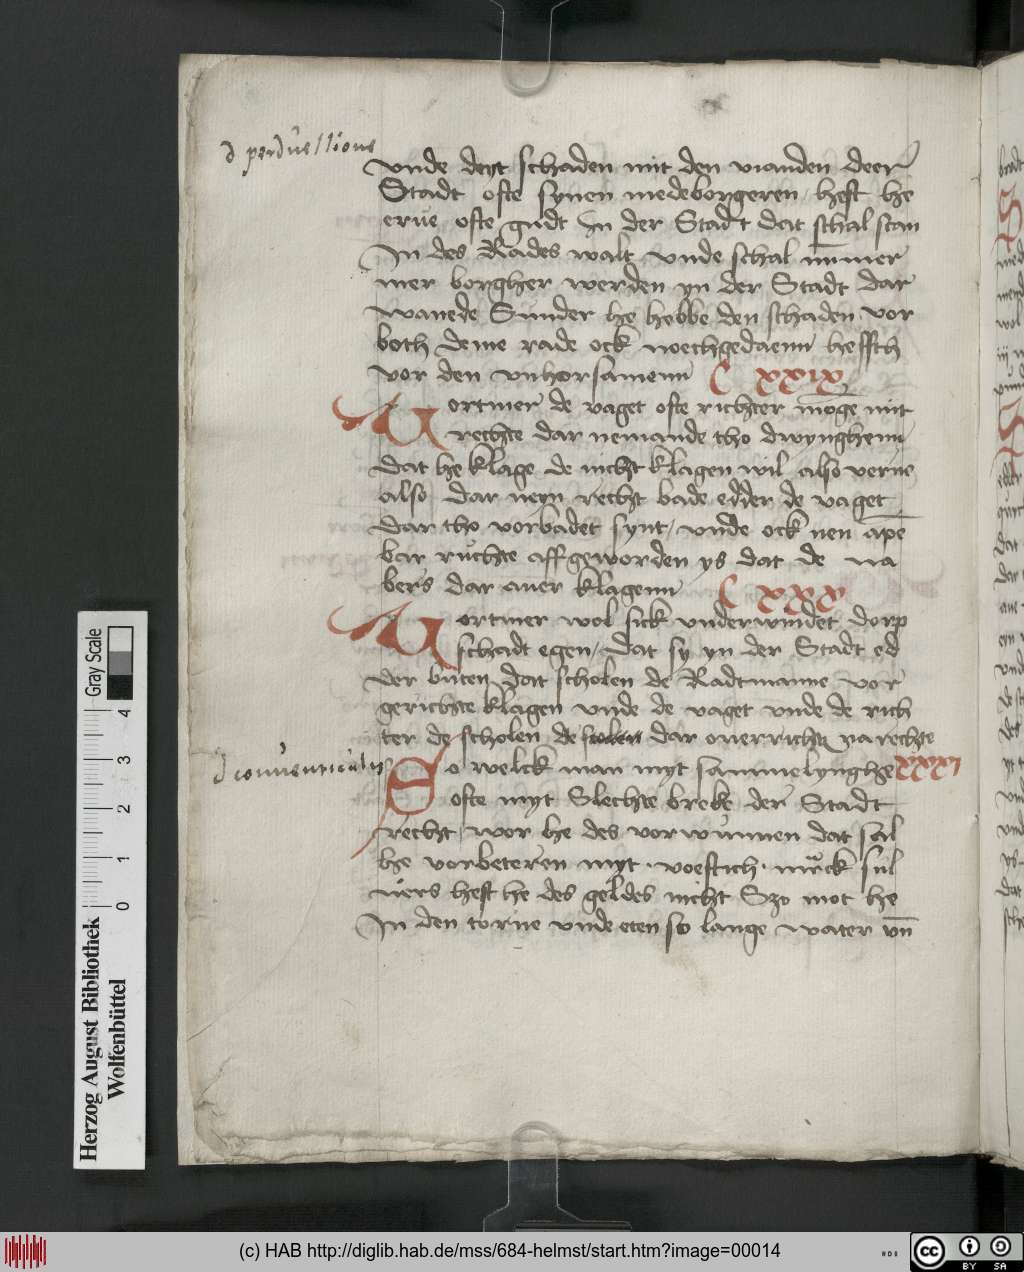 d perduellione
vnde deyt schaden mit den vianden deer
Stadt ofte synen medeborgeren heft he
erue ofte gudt in der Stadt dat schal stan
In des Rades walt vnde schal nummer
mer borgher werden yn der Stadt dar
wanede Sunder he hebbe den schaden vor
both deme rade ock noechgedaenn heffth
vor den vnhorsamenn C xxix
Vortmer de vaget ofte richter moge mit
rechte dar nemande tho dwynghenn
dat he klage de nicht klagen wil also verne
also dar neyn recht bade edder de vaget
dar tho vorbadet synt / vnde ock nen ape
bar ruchte affgeworden ys dat de na
bers dar auer klagenn C xxx
Vortmer wol sick vnderwindet dorp
schadt egen / dat sy yn der Stadt ed
der buten dat scholen de Radtmanne vor
gerichte klagen vnde de vaget vnde de rich
ter de scholen de dar ouerrichten na rechte
d conuenticulis
So welck man myt sammelynghe xxxi
ofte myt Slechte breke der Stadt
recht / wor he des vorwunnen dat sal
he vorbeteren myt · voeftich · mrck sul
uers heft he des geldes nicht Szo mot he
In den torne vnde eten so lange water vn
Gray Scale
0 1 2 3 4
Herzog August Bibliothek
Wolfenbüttel
(c) HAB http://diglib.hab.de/mss/684-helmst/start.htm?image=00014
cc BY SA